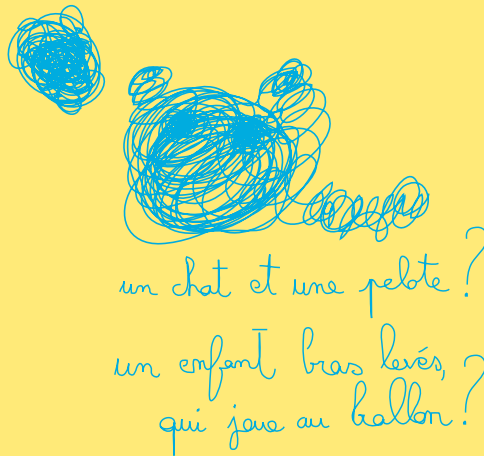 un chat et une pelote ?
un enfant bras levés,
qui joue au ballon ?